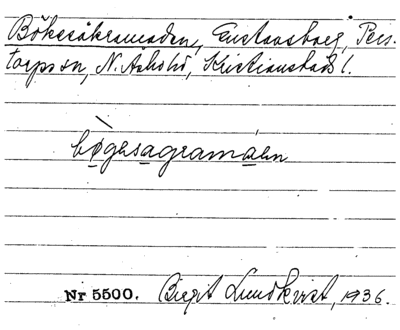 Bökesåkramaden, Gustavsborg, Pers-
torps sn, N. Åsbo hd, Kristianstads l.
bøgesagramáen
Nr 5500. Birgit Lundkvist, 1936.